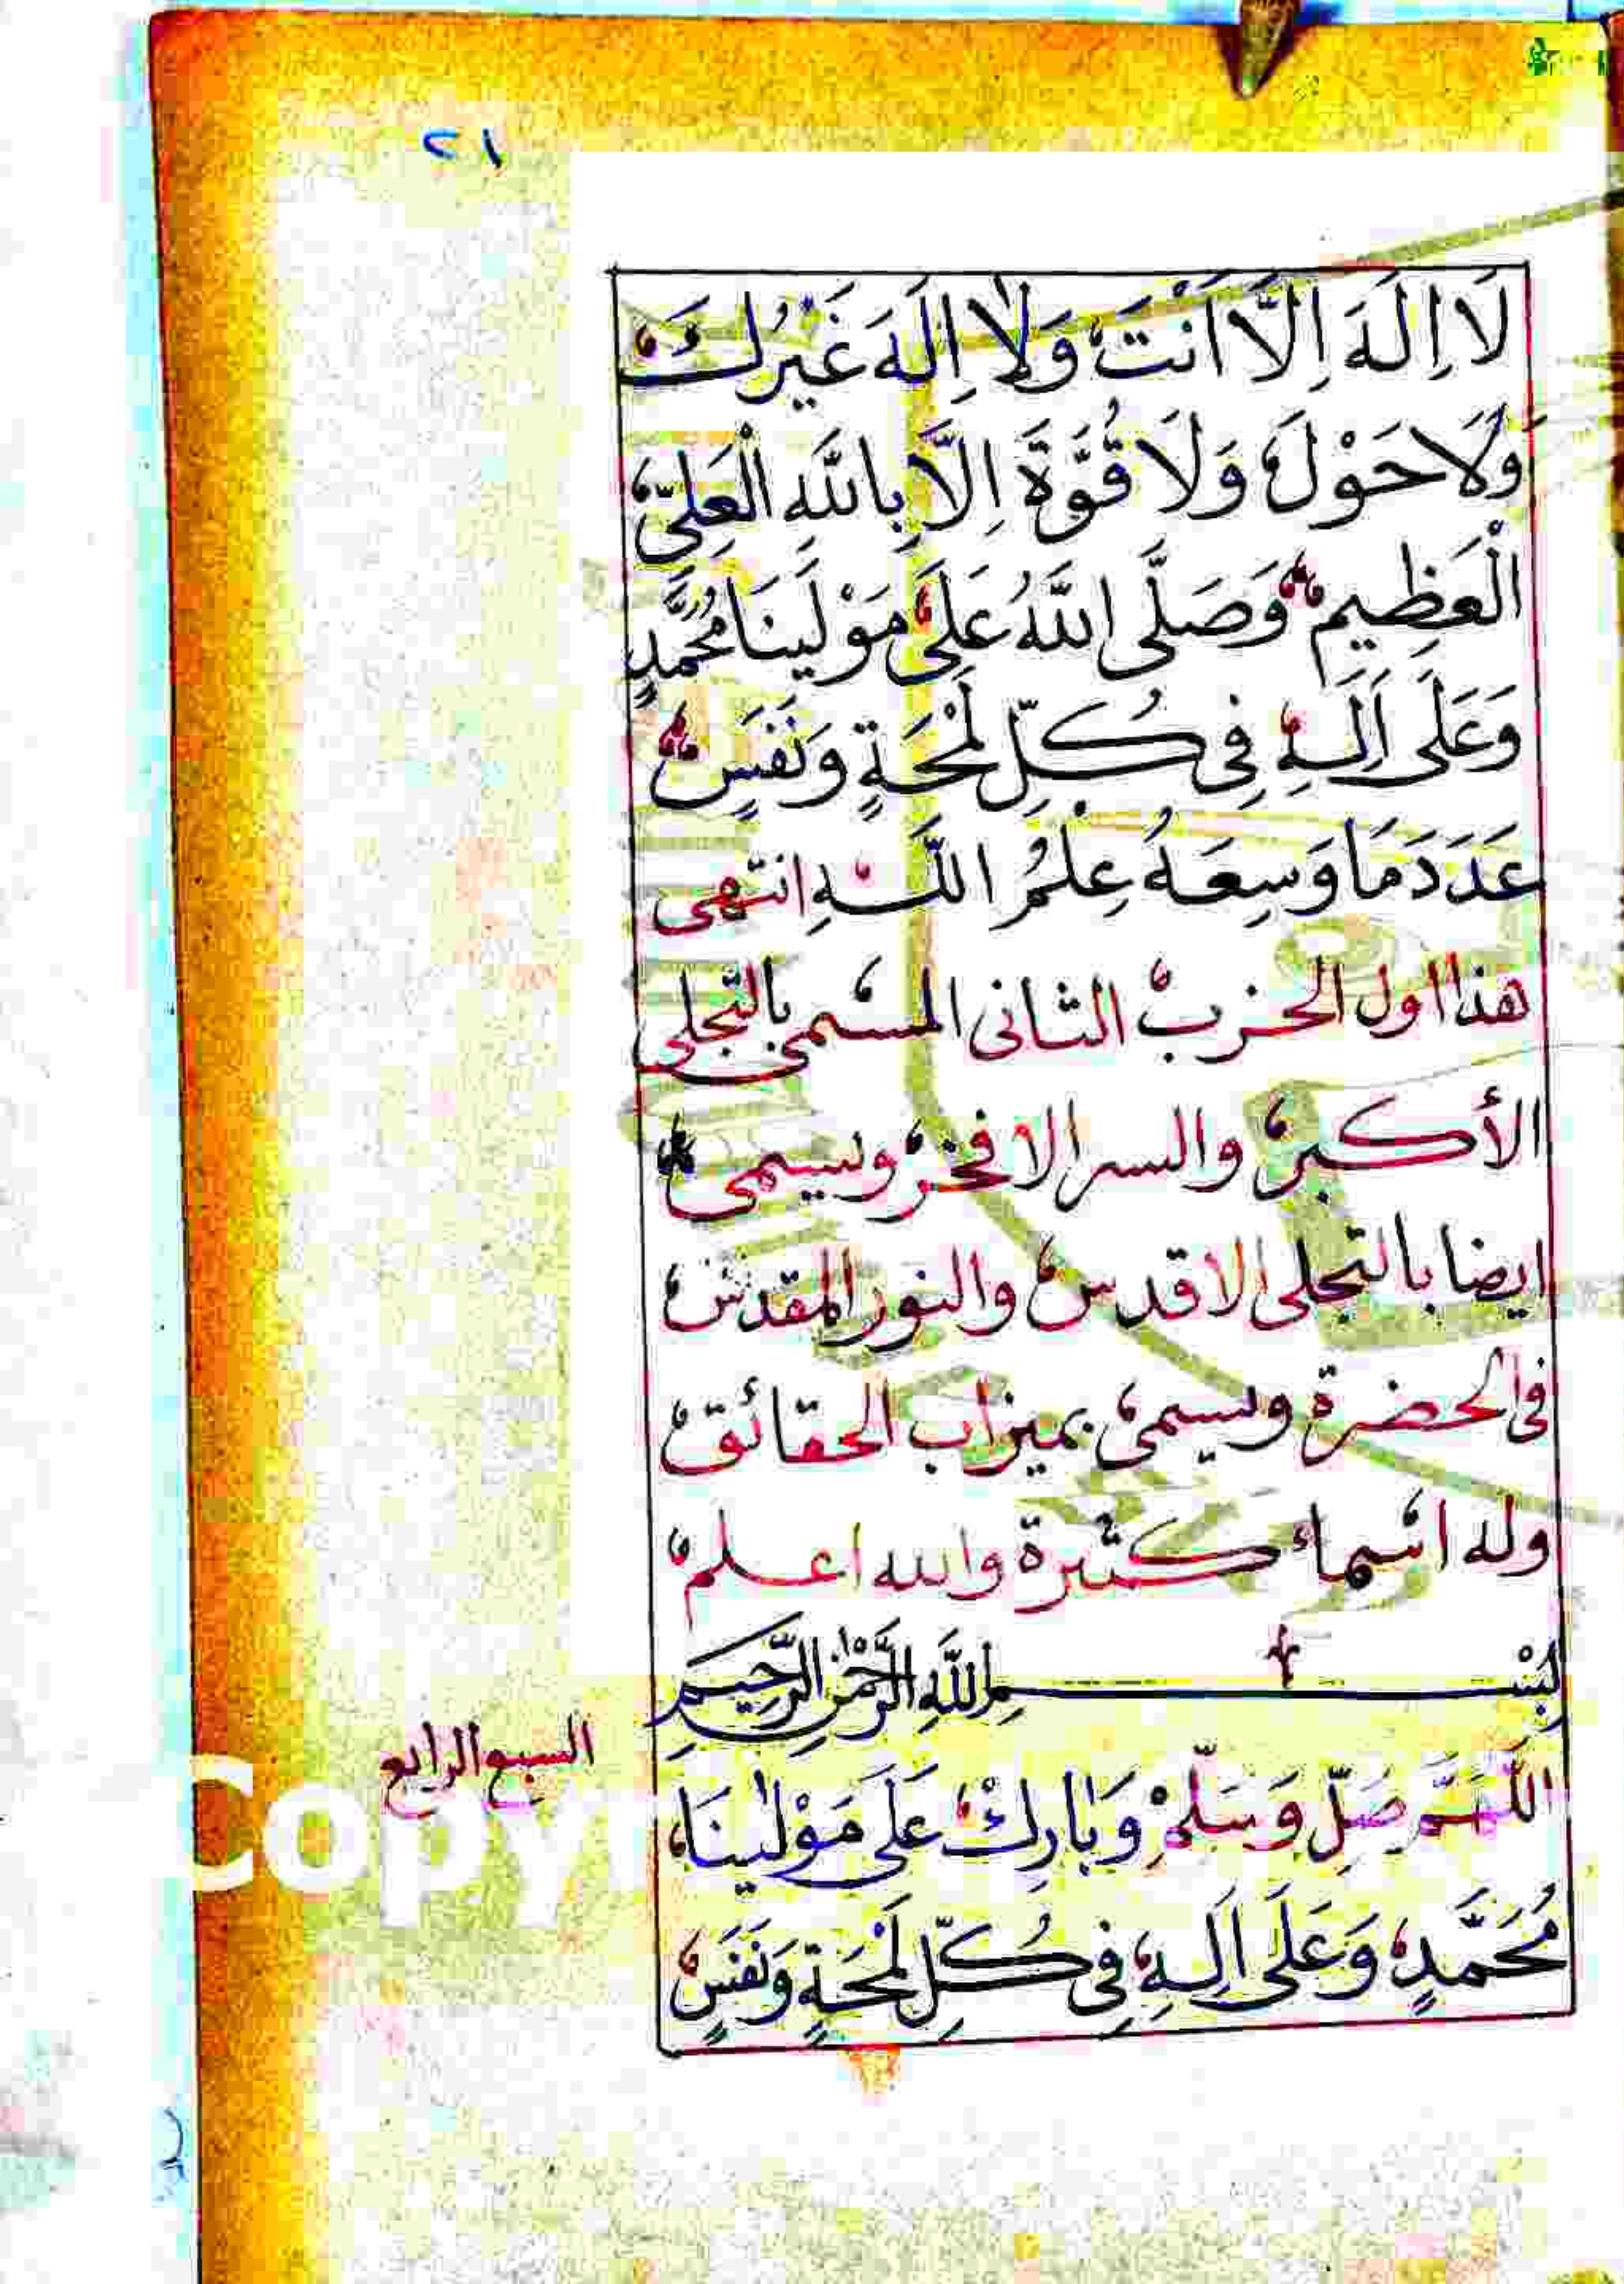 ٢١
لَا اِلَهَ اِلَّا اَنْتَ وَلَا اِلَهَ غَيْرُكَ
وَلَا حَوْلَ وَلَا قُوَّةَ اِلَّا بِاللَّهِ الْعَلِيِّ
الْعَظِيمِ وَصَلَّى اللَّهُ عَلَى مَوْلَينَا مُحَمَّدٍ
وَعَلَى اَلِهِ فِى كُلِّ لَمْحَةٍ وَنَفَسٍ
عَدَدَ مَا وَسِعَهُ عِلْمُ اللَّهِ انتهى
هذا اول الحزب الثانى المسمى بالتجلى
الأكبر والسر الافخر ويسمى
ايضا بالتجلى الاقدس والنور المقدس
فى الحضرة ويسمى بميزاب الحقائق
وله اسماء كثيرة والله اعلم
بِسْمِ اللَّهِ الرَّحْمٰنِ الرَّحِيمِ
السبع الرابع
اللَّهُمَّ صَلِّ وَسَلِّمْ وَبَارِكْ عَلَى مَوْلٰينَا
مُحَمَّدٍ وَعَلَى اَلِهِ فِى كُلِّ لَمْحَةٍ وَنَفَسٍ
Copy